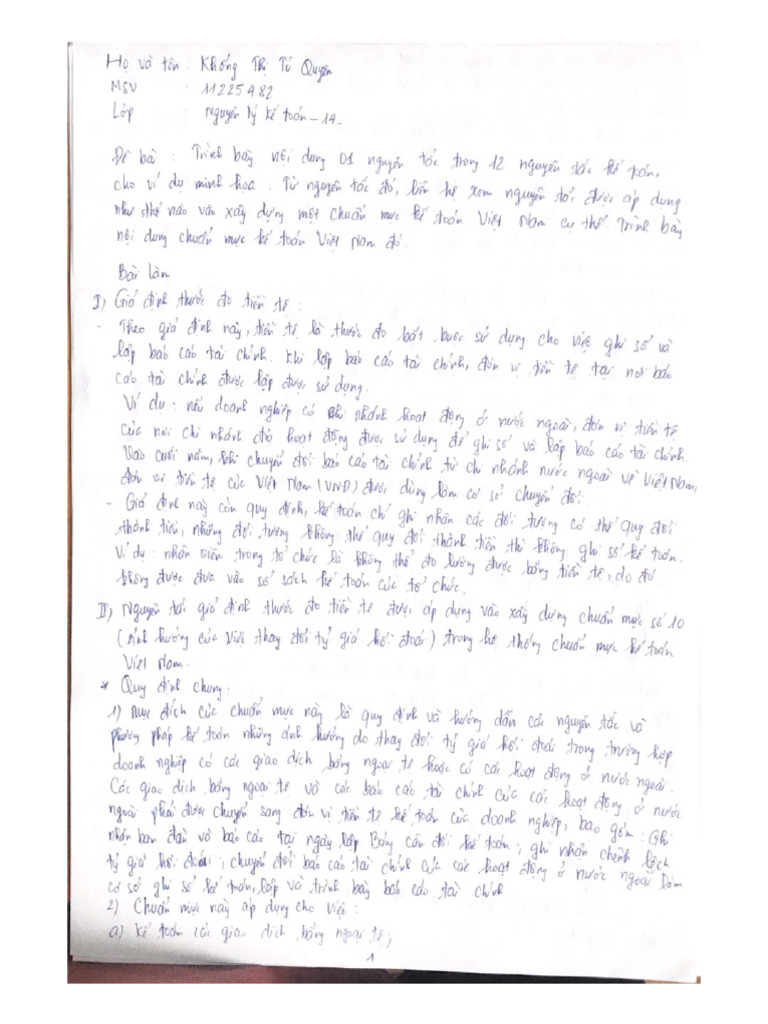 Họ và tên : Khổng Thị Tú Quyên
MSV : 11225482
Lớp : Nguyên lý kế toán _ 14 _
Đề bài : Trình bày nội dung 01 nguyên tắc trong 12 nguyên tắc kế toán,
cho ví dụ minh họa . Từ nguyên tắc đó, liên hệ xem nguyên tắc được áp dụng
như thế nào vào xây dựng một chuẩn mực kế toán Việt Nam cụ thể. Trình bày
nội dung chuẩn mực kế toán Việt Nam đó.
Bài làm
I) Giả định thước đo tiền tệ :
- Theo giả định này, tiền tệ là thước đo bắt buộc sử dụng cho việc ghi sổ và
lập báo cáo tài chính. Khi lập báo cáo tài chính, đơn vị tiền tệ tại nơi báo
cáo tài chính được lập được sử dụng.
Ví dụ : nếu doanh nghiệp có chi nhánh hoạt động ở nước ngoài, đơn vị tiền tệ
của nơi chi nhánh đó hoạt động được sử dụng để ghi sổ và lập báo cáo tài chính.
Vào cuối năm, khi chuyển đổi báo cáo tài chính từ chi nhánh nước ngoài về Việt Nam,
đơn vị tiền tệ của Việt Nam (VNĐ) được dùng làm cơ sở chuyển đổi.
- Giả định này còn quy định, kế toán chỉ ghi nhận các đối tượng có thể quy đổi
thành tiền, những đối tượng không thể quy đổi thành tiền thì không ghi sổ kế toán.
Ví dụ : nhân viên trong tổ chức là không thể đo lường được bằng tiền tệ, do đó
không được đưa vào sổ sách kế toán của tổ chức.
II) Nguyên tắc giả định thước đo tiền tệ được áp dụng vào xây dựng chuẩn mực số 10
( Ảnh hưởng của việc thay đổi tỷ giá hối đoái ) trong hệ thống chuẩn mực kế toán
Việt Nam.
* Quy định chung:
1) Mục đích của chuẩn mực này là quy định và hướng dẫn các nguyên tắc và
phương pháp kế toán những ảnh hưởng do thay đổi tỷ giá hối đoái trong trường hợp
doanh nghiệp có các giao dịch bằng ngoại tệ hoặc có các hoạt động ở nước ngoài.
Các giao dịch bằng ngoại tệ và các báo cáo tài chính của các hoạt động ở nước
ngoài phải được chuyển sang đơn vị tiền tệ kế toán của doanh nghiệp, bao gồm : Ghi
nhận ban đầu và báo cáo tại ngày lập Bảng cân đối kế toán ; ghi nhận chênh lệch
tỷ giá hối đoái ; chuyển đổi báo cáo tài chính của các hoạt động ở nước ngoài làm
cơ sở ghi sổ kế toán, lập và trình bày báo cáo tài chính
2) Chuẩn mực này áp dụng cho việc :
a) Kế toán các giao dịch bằng ngoại tệ;
1